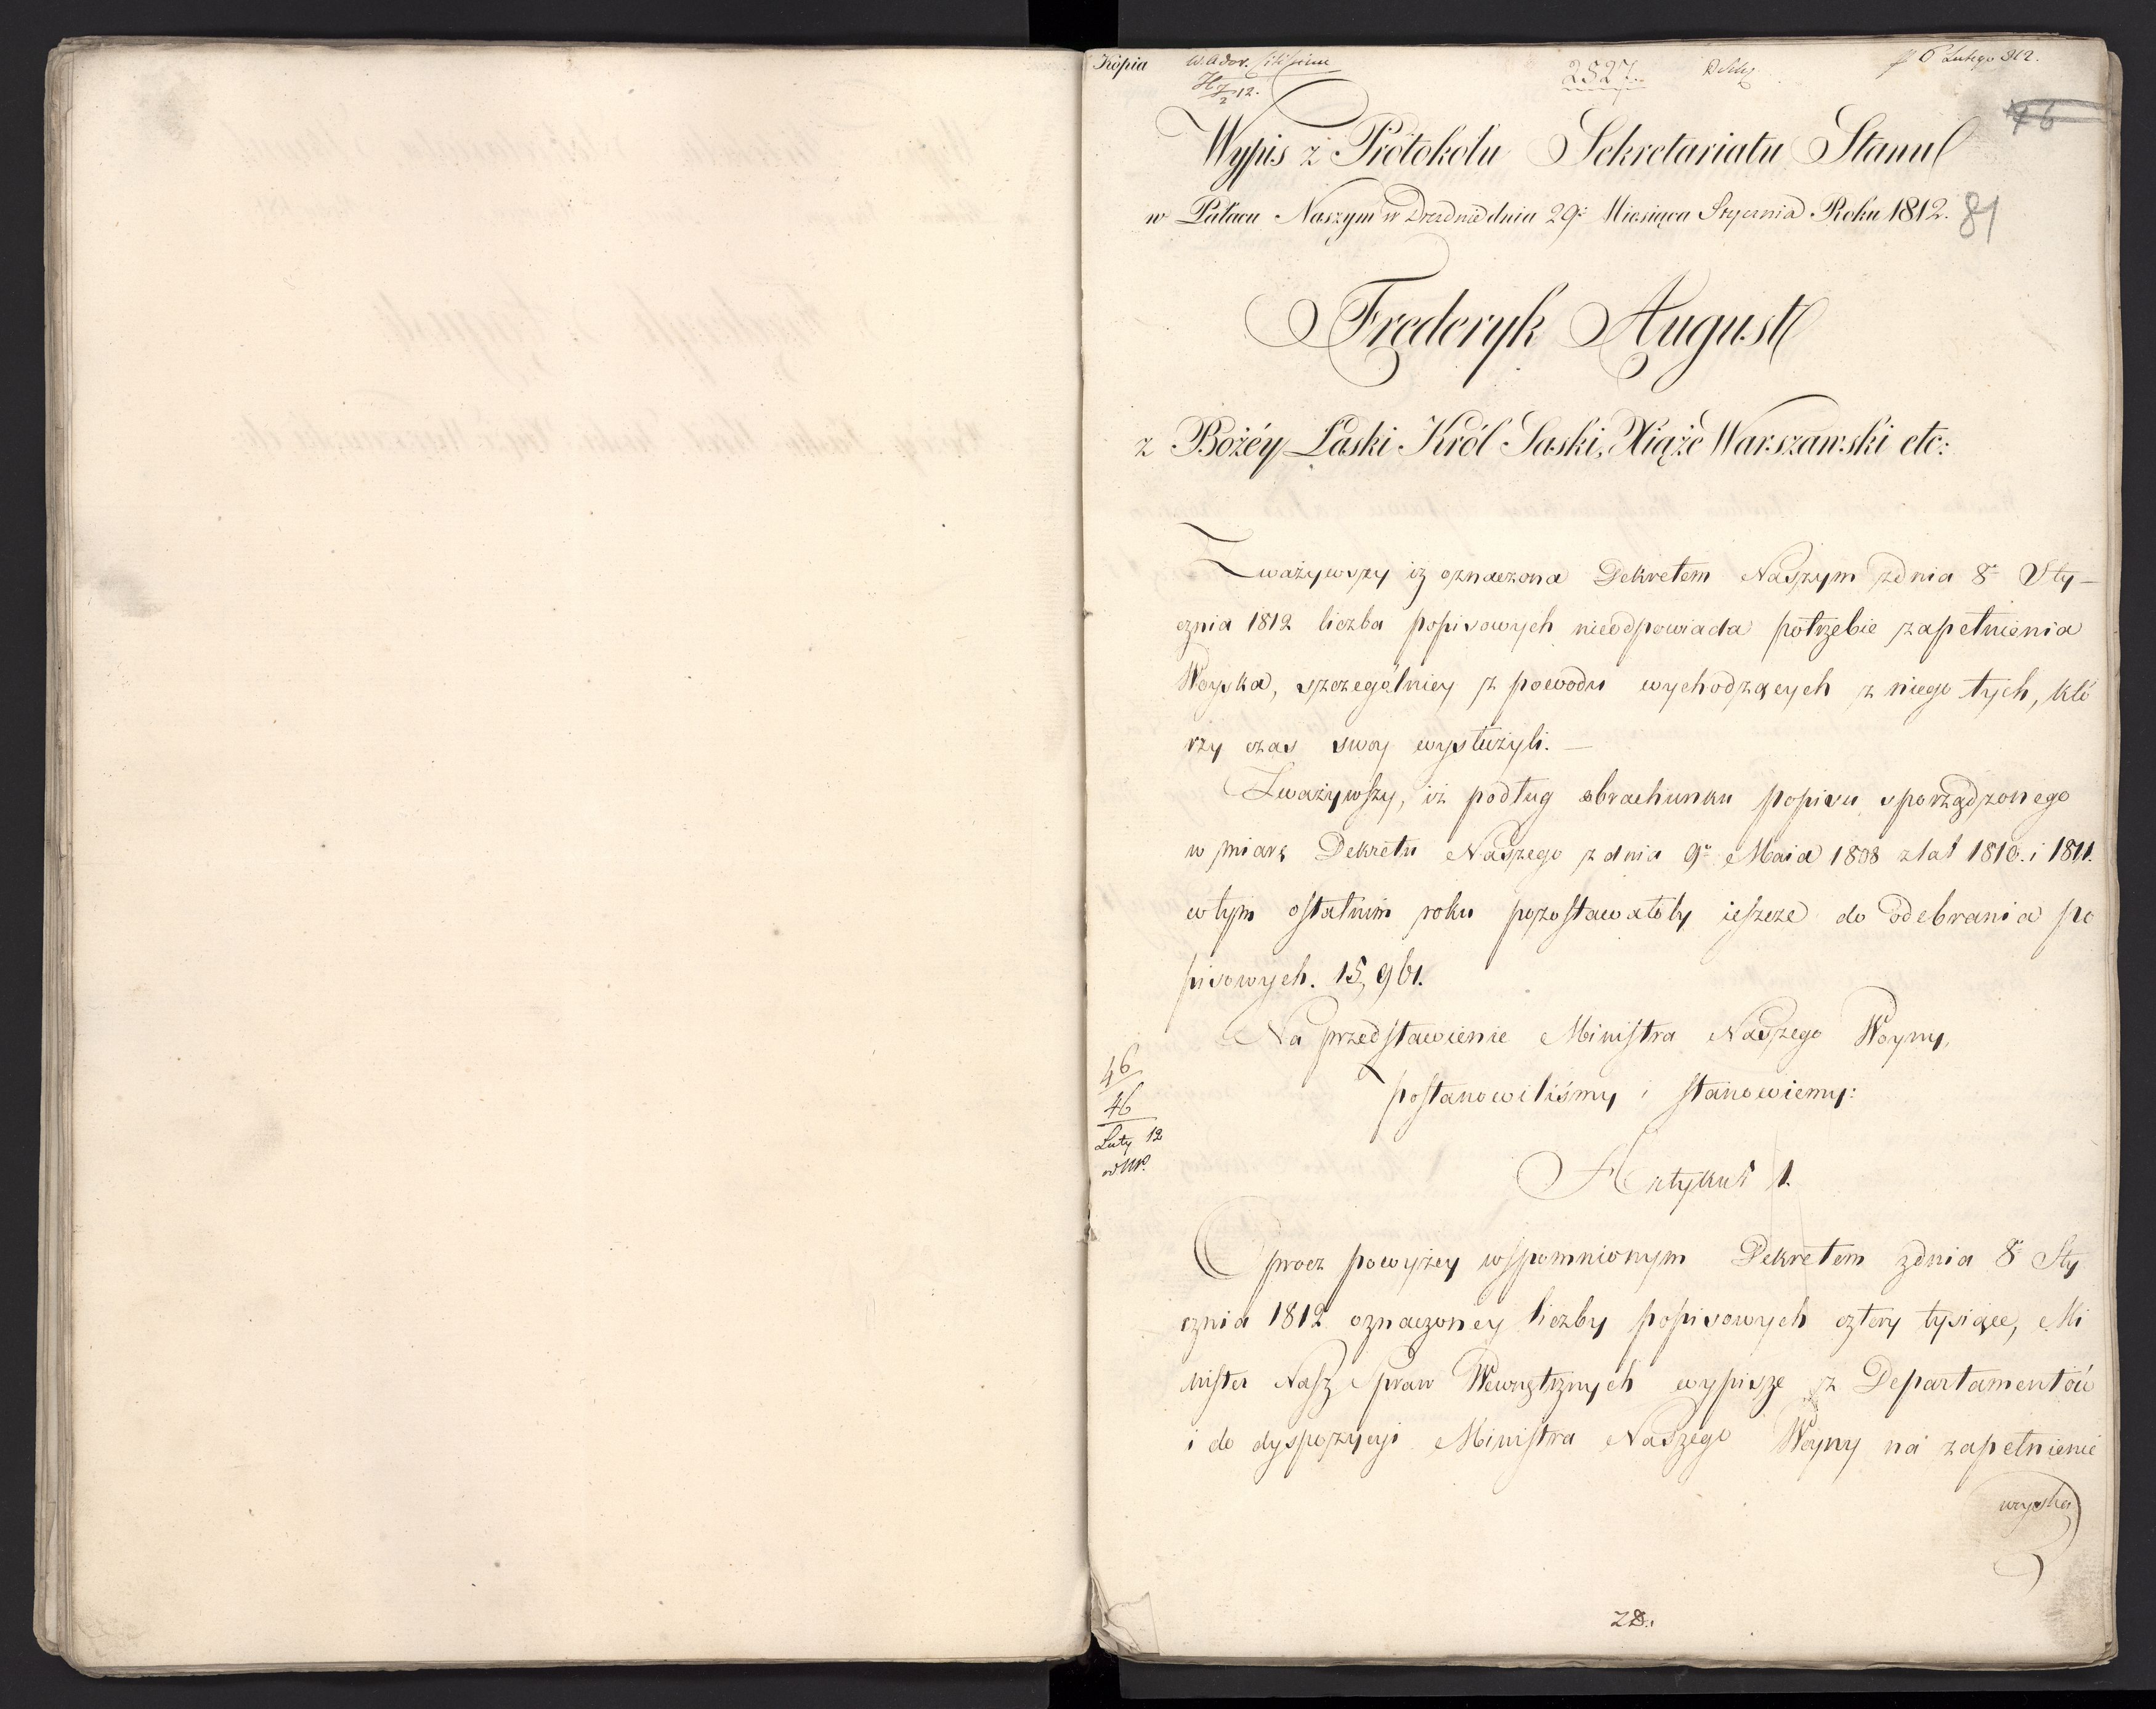 Kópia
2527.
6 Lutego 812.
76
Wypis z Protokołu Sekretariatu Stanu
w Pałacu Naszym w Dreznie dnia 29. Miesiąca Stycznia Roku 1812.
81
Frederyk August
z Bożéy Łaski Król Saski, Xiąże Warszawski etc:
Zważywszy iż oznaczona Dekretem Naszym z dnia 8. Sty-
cznia 1812 liczba popisowych nieodpowiada potrzebie zapełnienia
Woyska, szczególniey z powodu wychodzących z niego tych, któ
rzy czas swoy wysłużyli. —
Zważywszy, iż podług obrachunku popisu sporządzonego
w miarę Dekretu Naszego z dnia 9. Maia 1808 z lat 1810. i 1811.
w tym ostatnim roku pozostawałoby ieszcze do odebrania po
pisowych. 15,961.
Na przedstawienie Ministra Naszego Woyny,
postanowiliśmy i stanowiemy:
46
46
Luty 12
Artykuł 1.
Oprocz powyżey wspomnionym Dekretem z dnia 8. Sty
cznia 1812 oznaczoney liczby popisowych cztery tysiące, Mi
nister Nasz Spraw Wewnętrznych wypisze z Departamentów
i do dyspozycyi Ministra Naszego Woyny na zapełnienie
woyska
28.